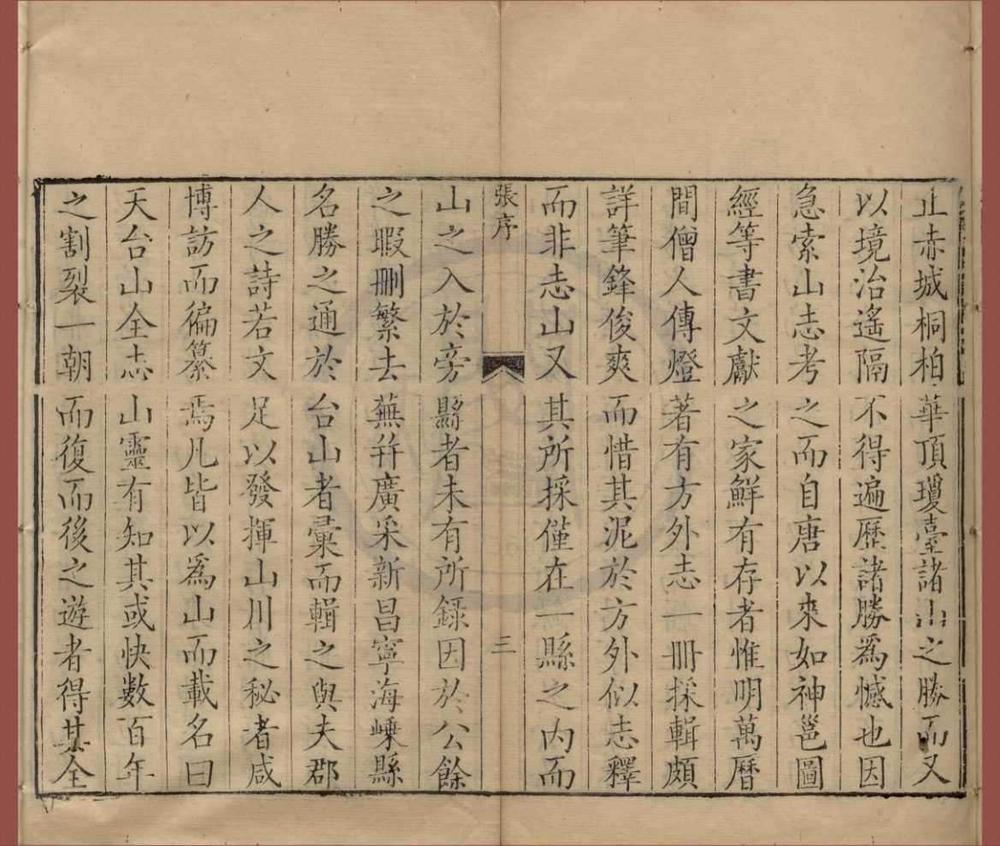 止赤城桐柏華頂瓊臺諸山之勝而又
以境治遙隔不得遍歷諸勝為憾也因
急索山志考之而自唐以來如神邕圖
經等書文獻之家鮮有存者惟明萬曆
間僧人傳燈著有方外志一冊採輯頗
詳筆鋒俊爽而惜其泥於方外似志釋
而非志山又其所採僅在一縣之內而
張序
三
山之入於旁縣者未有所録因於公餘
之暇刪繁去蕪并廣采新昌寧海嵊縣
名勝之通於台山者彙而輯之與夫郡
人之詩若文足以發揮山川之秘者咸
博訪而徧纂焉凡皆以為山而載名曰
天台山全志山靈有知其或快數百年
之割裂一朝而復而後之遊者得其全